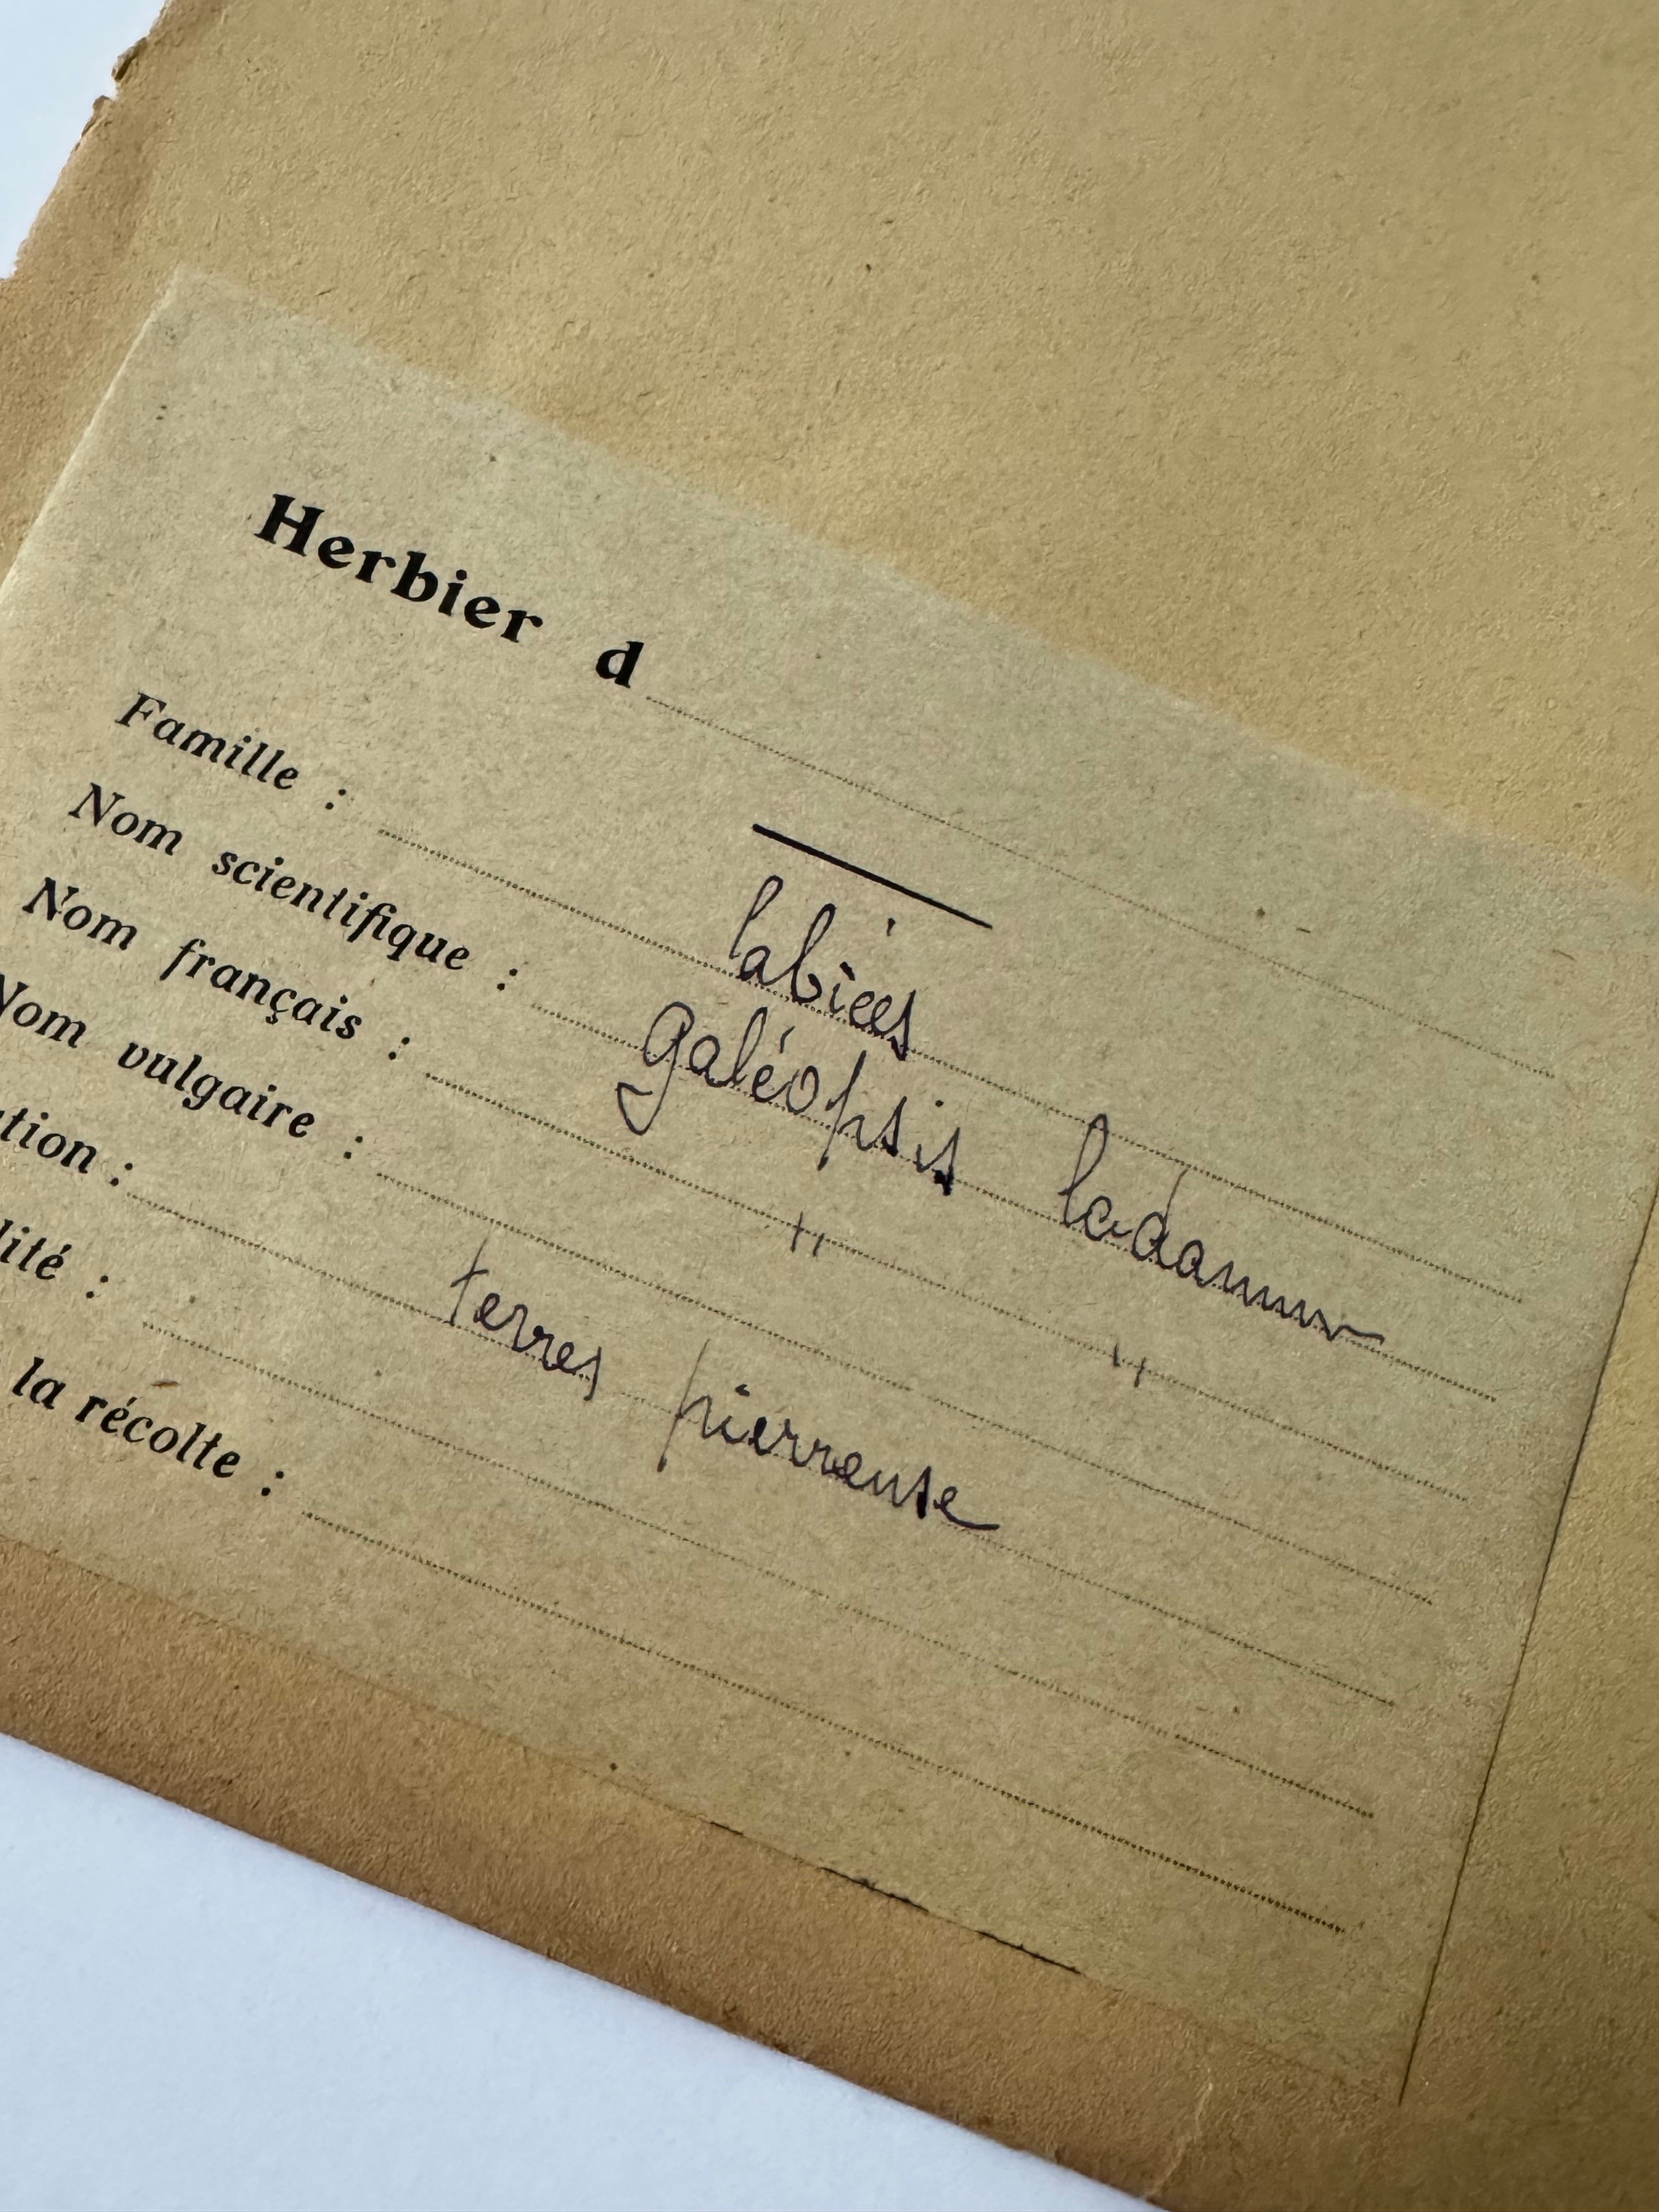 Herbier d
Famille : labiées
Nom scientifique : galéopsis ladanum
Nom français : " "
Nom vulgaire :
tion : terres pierreuse
lité :
la récolte :